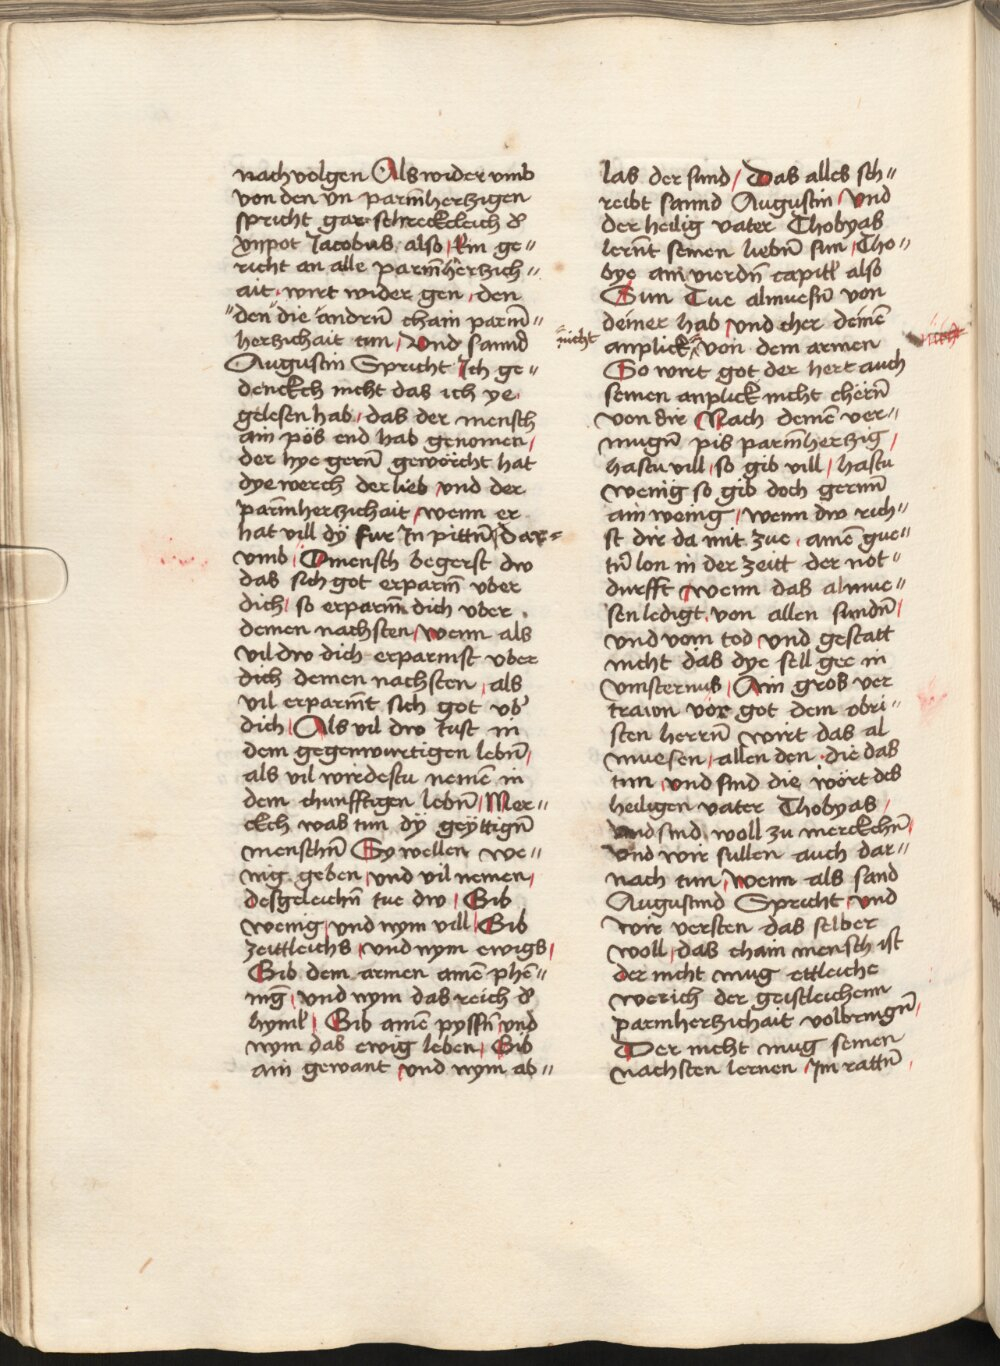 nachvolgen Als wider vmb
von den vn parm̄herczigen
spricht gar schreckleich d̄
xiipot Jacobus also / Ein ge〃
richt an alle parm̄herczich〃
ait wirt wider gen den
〃den die andrn̄ chain parm̄〃
herczichait tun / Vnd sannd
Augustin Spricht Ich ge〃
denckch nicht das ich ye
gelesen hab / das der mensch
ain pös end hab genomen /
der hye gern̄ gewörcht hat
dye werch der lieb vnd der
parm̄herczichait / wenn er
hat vill dÿ fur In pittn̄ / Dar〃
vmb / O mensch begerst dw
das sich got erparm̄ vber
dich / so erparm̄ dich vber
deinen nachsten / wenn als
vil dw dich erparmst vber
dich deinen nachsten / als
vil erparm̄t sich got vb̄
dich / Als vil dw tust in
dem gegenwurtigen lebn̄ /
als vil wirdestu nemē in
dem chunfftigen lebn̄ / Mer〃
ckch was tun dÿ geyttign̄
menschn̄ Sy wellen we〃
nig geben / vnd vil nemen /
desgeleichn̄ tue dw / Gib
wenig / vnd nym vill / Gib
zeittleichs / vnd nym ewigs /
Gib dem armen ainē phē〃
niḡ / vnd nym das reich d̄
hyml̄ / Gib ainē pyssn̄ vnd
nym das ewig leben / Gib
ain gewant / vnd nym ab〃
las der sund / Das alles sch〃
reibt sannd Augustin / vnd
der heilig vater Thobyas
lernt seinen liebn̄ sun / Tho〃
bye am vierdn̄ capitl̄ also
Sun Tue almuesn̄ von
deiner hab / vnd cher deinē
nicht
anplick von dem armen
So wirt got der herr auch
seinen anplick nicht chern̄
von dir / Nach deinē ver〃
mugn̄ pis parm̄herczig /
hastu vill / so gib vill / hastu
wenig so gib doch gernn̄
ain wenig / wenn dw rich〃
st dir da mit zue ainē gue〃
tn̄ lon in der zeitt der not〃
durfft / wenn das almue〃
sen ledigt von allen sundn̄ /
vnd vom tod / vnd gestatt
nicht das dye sell gee in
vinsternus / Ain gros ver
trawn vor got dem obri〃
sten herrn̄ wirt das al
muesen / allen den die das
tun / vnd sind die wort des
heiligen vater Thobyas /
vnd sind woll zu merckchn̄ /
vnd wir sullen auch dar〃
nach tun / Wenn als sand
Augustind Spricht / vnd
wir versten das selber
woll / das chain mensch ist
der nicht mug ettleiche
werich der geistleichenn
parmherczichait volbringn̄ /
Der nicht mug seinen
nachsten lernen / Im rattn̄ /